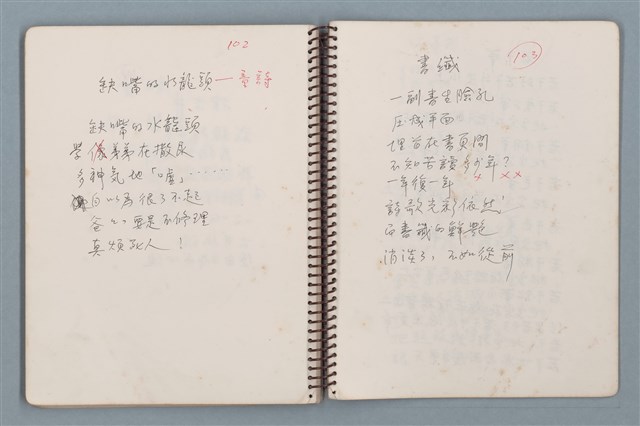 102
缺嘴的水龍頭—童詩
缺嘴的水龍頭
學像弟弟在撒尿
多神気地「噓」……
自以為很了不起
爸爸要是不修理
真煩死人！
103
書籤
一副書生臉孔
压成平面
埋首在書頁間
不知苦讀多少年？
一年復一年
詩歌光彩依然
而書籤的鮮艷
消淡了，不如從前